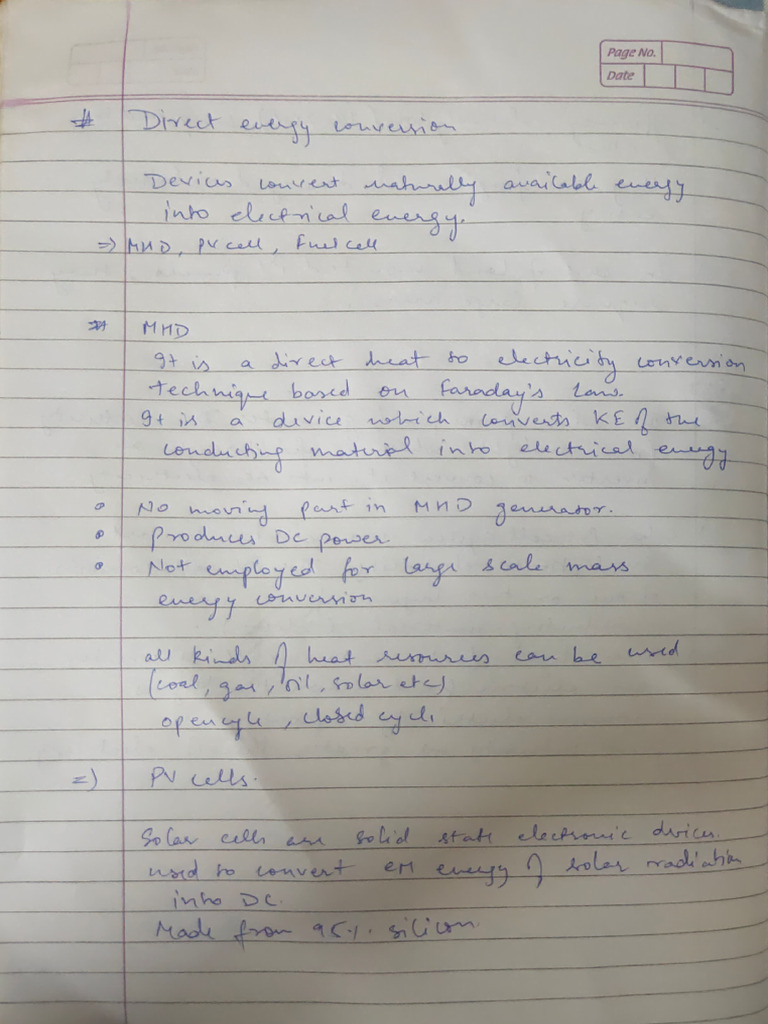 Page No.
Date
# Direct energy conversion
Devices convert naturally available energy
into electrical energy.
=> MHD, PV cell, Fuel cell
** MHD
It is a direct heat to electricity conversion
technique based on Faraday's Law.
It is a device which converts KE of the
conducting material into electrical energy
o No moving part in MHD generator.
o Produces DC power.
o Not employed for large scale mass
energy conversion
all kinds of heat resources can be used
(coal, gas, oil, solar etc)
open cycle, closed cycle
=) PV cells.
Solar cells are solid state electronic devices.
used to convert EM energy of solar radiation
into DC.
Made from 95%. silicon.